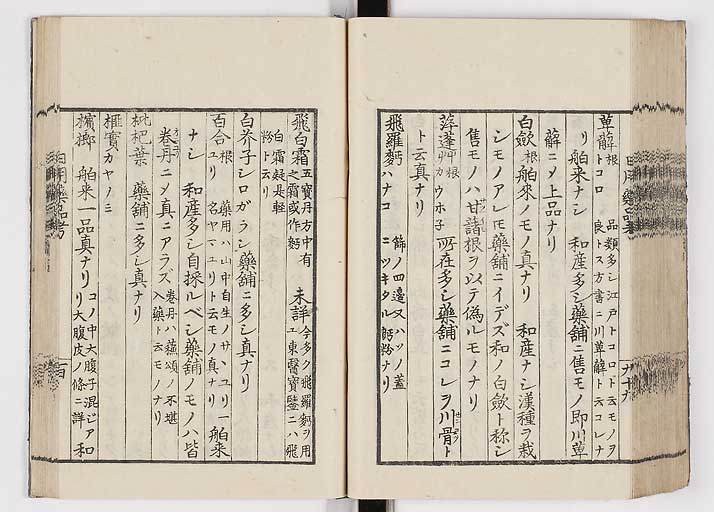 萆薢 根 トコロ 品類多シ江戸トコロト云モノヲ
良トス方書ニ川萆薢ト云コレナ
リ 舶来ナシ 和産多シ藥舗ニ售モノ即川萆
薢ニメ上品ナリ
白歛 根 舶來ノモノ真ナリ 和産ナシ漢種ヲ栽
シモノアレ𪜈藥舗ニイデズ和ノ白歛ト称シ
售モノハ甘藷根ヲ以テ偽ルモノナリ
萍蓬艸 根 カウホ子 所在多シ藥舗ニコレヲ川骨ト
ト云真ナリ
飛羅麪 ハナコ 餝ノ四邊又ハツノ蓋
ニツキタル麪粉ナリ
飛白霜 五寶丹方中有
之霜或作麪
未詳 今多ク飛羅麪ヲ用
ユ東醫寶鑒ニハ飛
白霜疑是輕
粉ト云リ
白芥子 シロガラシ 藥舗ニ多シ真ナリ
百合 根 ユリ 藥用ハ山中自生ノサヽユリ一
名ヤマユリト云モノ真ナリ 舶来
ナシ 和産多シ自採ルベシ藥舗ノモノハ皆
卷丹ニメ真ニアラズ 卷丹ハ蘓頌ノ不堪
入藥ト云モノナリ
枇杷葉 藥舗ニ多シ真ナリ
榧實 カヤノミ
檳榔 舶来一品真ナリ コノ中大腹子混ジア
リ大腹皮ノ條ニ詳 和
日用藥品考
九十九
日用藥品考
百